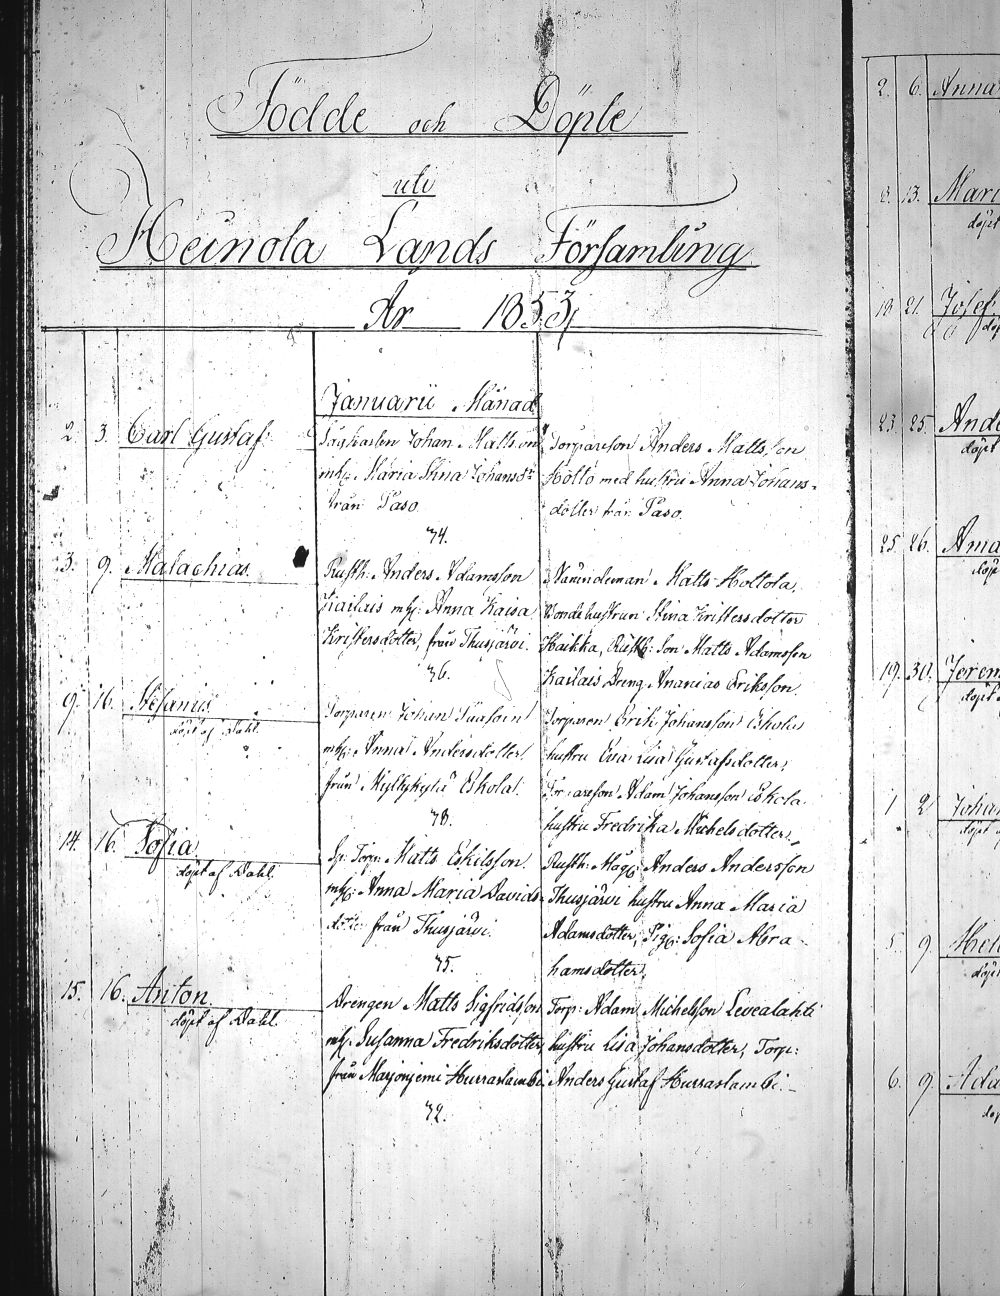 Födde och Döpte
uti
Heinola Lands Församling
År 1853
Januarii Månad
2. 3. Carl Gustaf
Johan Mattsson
mh: Maria Stina Johansdr
från Paso
34.
Torpareson Anders Mattsson
Höltö med hustru Anna Johans-
dotter från Paso.
3. 9. Malachias
Rusth: Anders Adamsson
Kailais mh: Anna Kaisa
Kristersdotter, från Thusjärvi.
36.
Nämndeman Matts Hollola,
Bondehustrun Stina Kristersdotter
Haikka, Rusth: Son Matts Adamsson
Kailais Dreng Ananias Eriksson
9. 16. Stefanus
döpt af Dahl.
Torparen Johan
mh: Anna Andersdotter
från Myllykylä Eskola.
38.
Torparen Erik Johansson Eskola
hustru Eva Lisa Gustafsdotter,
Torpareson Adam Johansson Eskola
hustru Fredrika Michelsdotter,
14. 16. Sofia
döpt af Dahl.
Sp: Torp: Matts Eskilsson
mh: Anna Maria Davids-
dotter från Thusjärvi.
35.
Rusth: Måg: Anders Andersson
Thusjärvi hustru Anna Maria
Adamsdotter, Pig: Sofia Abra-
hamsdotter,
15. 16. Anton
döpt af Dahl.
Drengen Matts Sigfridsson
mh: Susanna Fredriksdotter,
från Marjoniemi Hurraslambi
32.
Torp: Adam Michelsson Levealahti
hustru Lisa Johansdotter, Torp:
Anders Gustaf Hurraslambi.
2. 6. Anna
8. 13. Mari
döpt
19 21. Josef
döp
23. 25. Ande
döpt
25. 26. Ama
döpt
19. 30. Jerem
döpt a
1 2 Johan
döpt
5 9 Hel
döpt
6. 9. Ada
döp